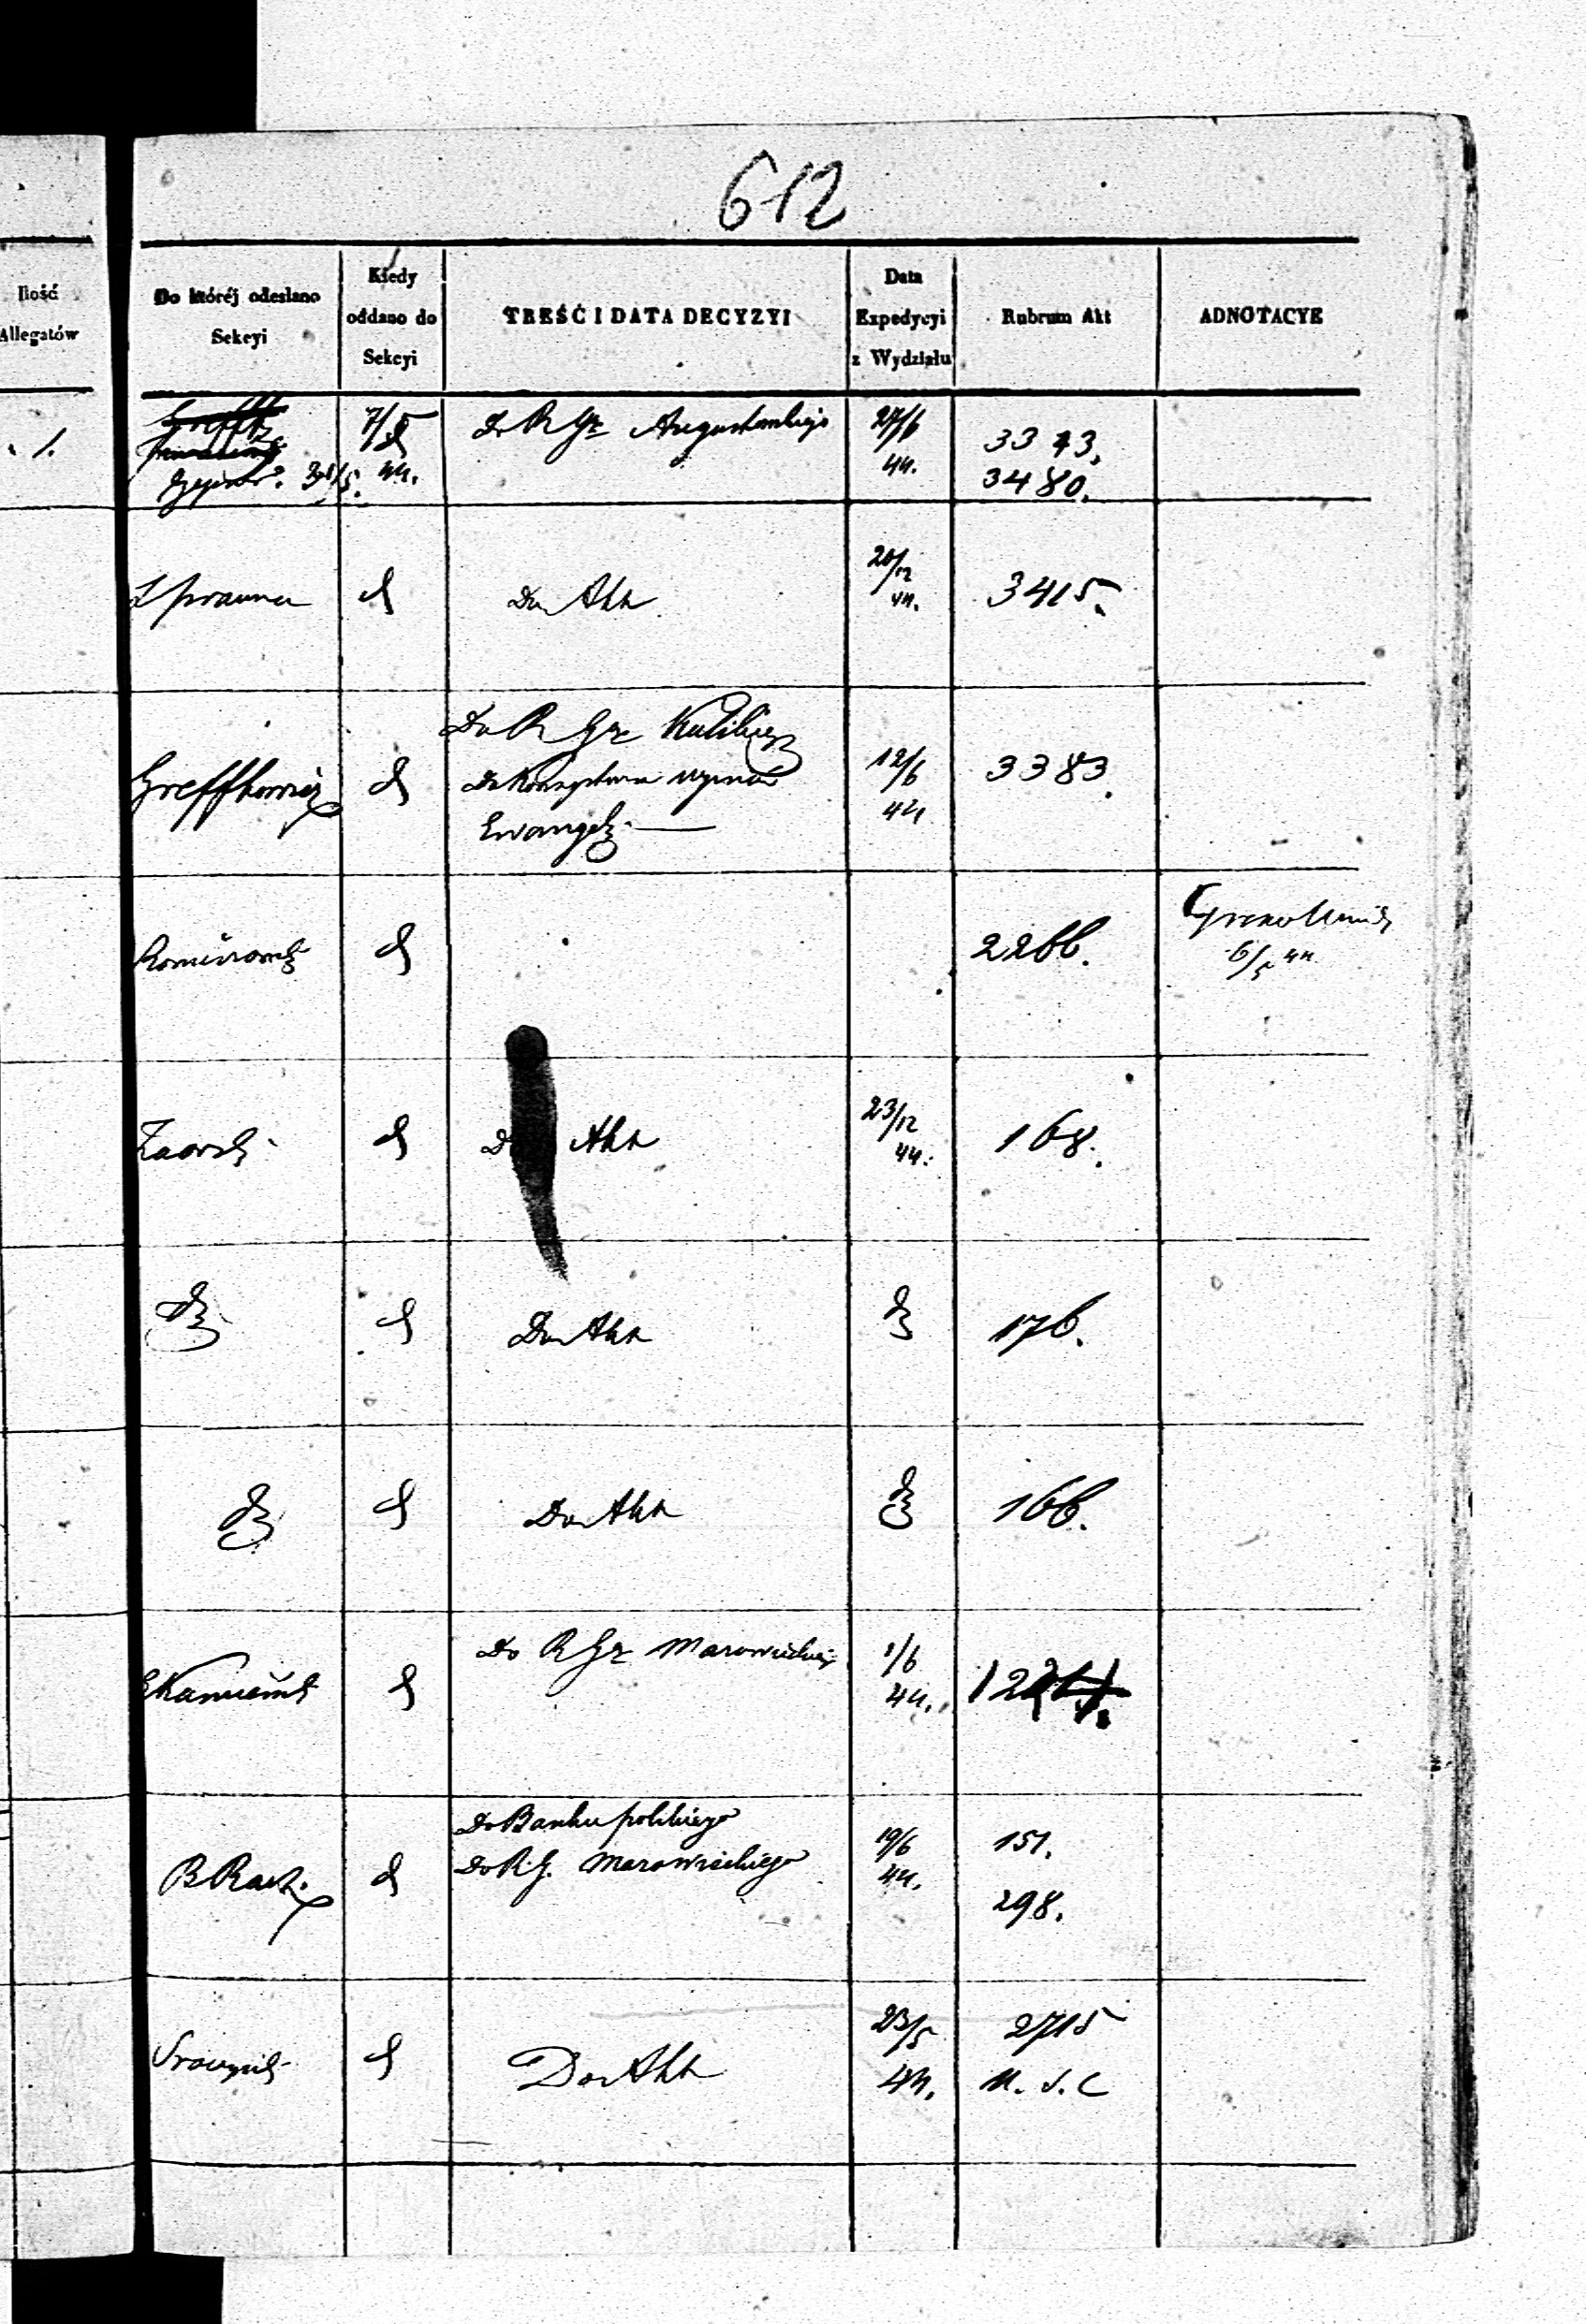 612
Ilość
Allegatów
Do któréj odesłano
Sekcyi
Kiedy
oddano do
Sekcyi
TREŚĆ I DATA DECYZYI
Data
Expedycyi
z Wydziału
Rubrum Akt
ADNOTACYE
1.
7/5
44.
Do R Gr Augustowskiego
27/6
44.
3373.
3480.
Sprawa
d
Do Akt
20/12
44.
3415.
Greffkowicz
d
Do R Gr Kaliskiego
Do Konsystorza
Ewangel.
12/6
44
3383.
d
2266.
6/5 44
Zaorski
d
Do Akt
23/12
44.
168.
d
d
Do Akt
d
176.
d
d
Do Akt
d
166.
d
Do R Gr Mazowieckiego
1/6
44.
B Rach.
d
Do Banku polskiego
Do R. G. Mazowieckiego
19/6
44.
151.
298.
d
Do Akt
23/5
44.
2715